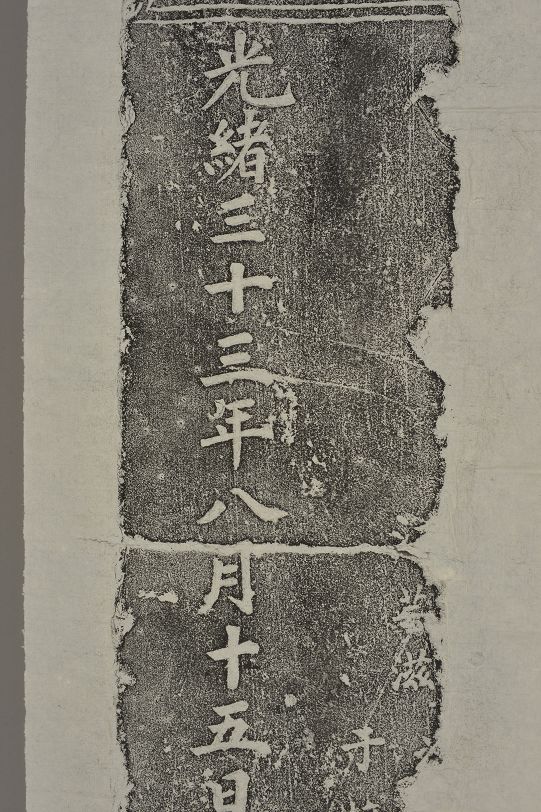 滋
于
光緒三十三年八月十五日